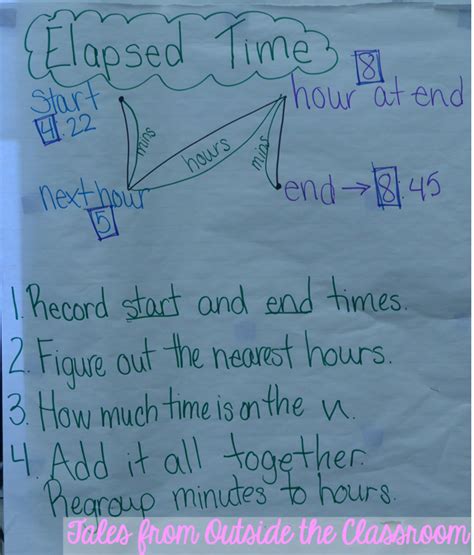 Elapsed Time
start
4:22
mins
hours
mins
8
hour at end
next hour
5
end → 8:45
1. Record start and end times.
2. Figure out the nearest hours.
3. How much time is on the N.
4. Add it all together.
Regroup minutes to hours.
Tales from Outside the Classroom